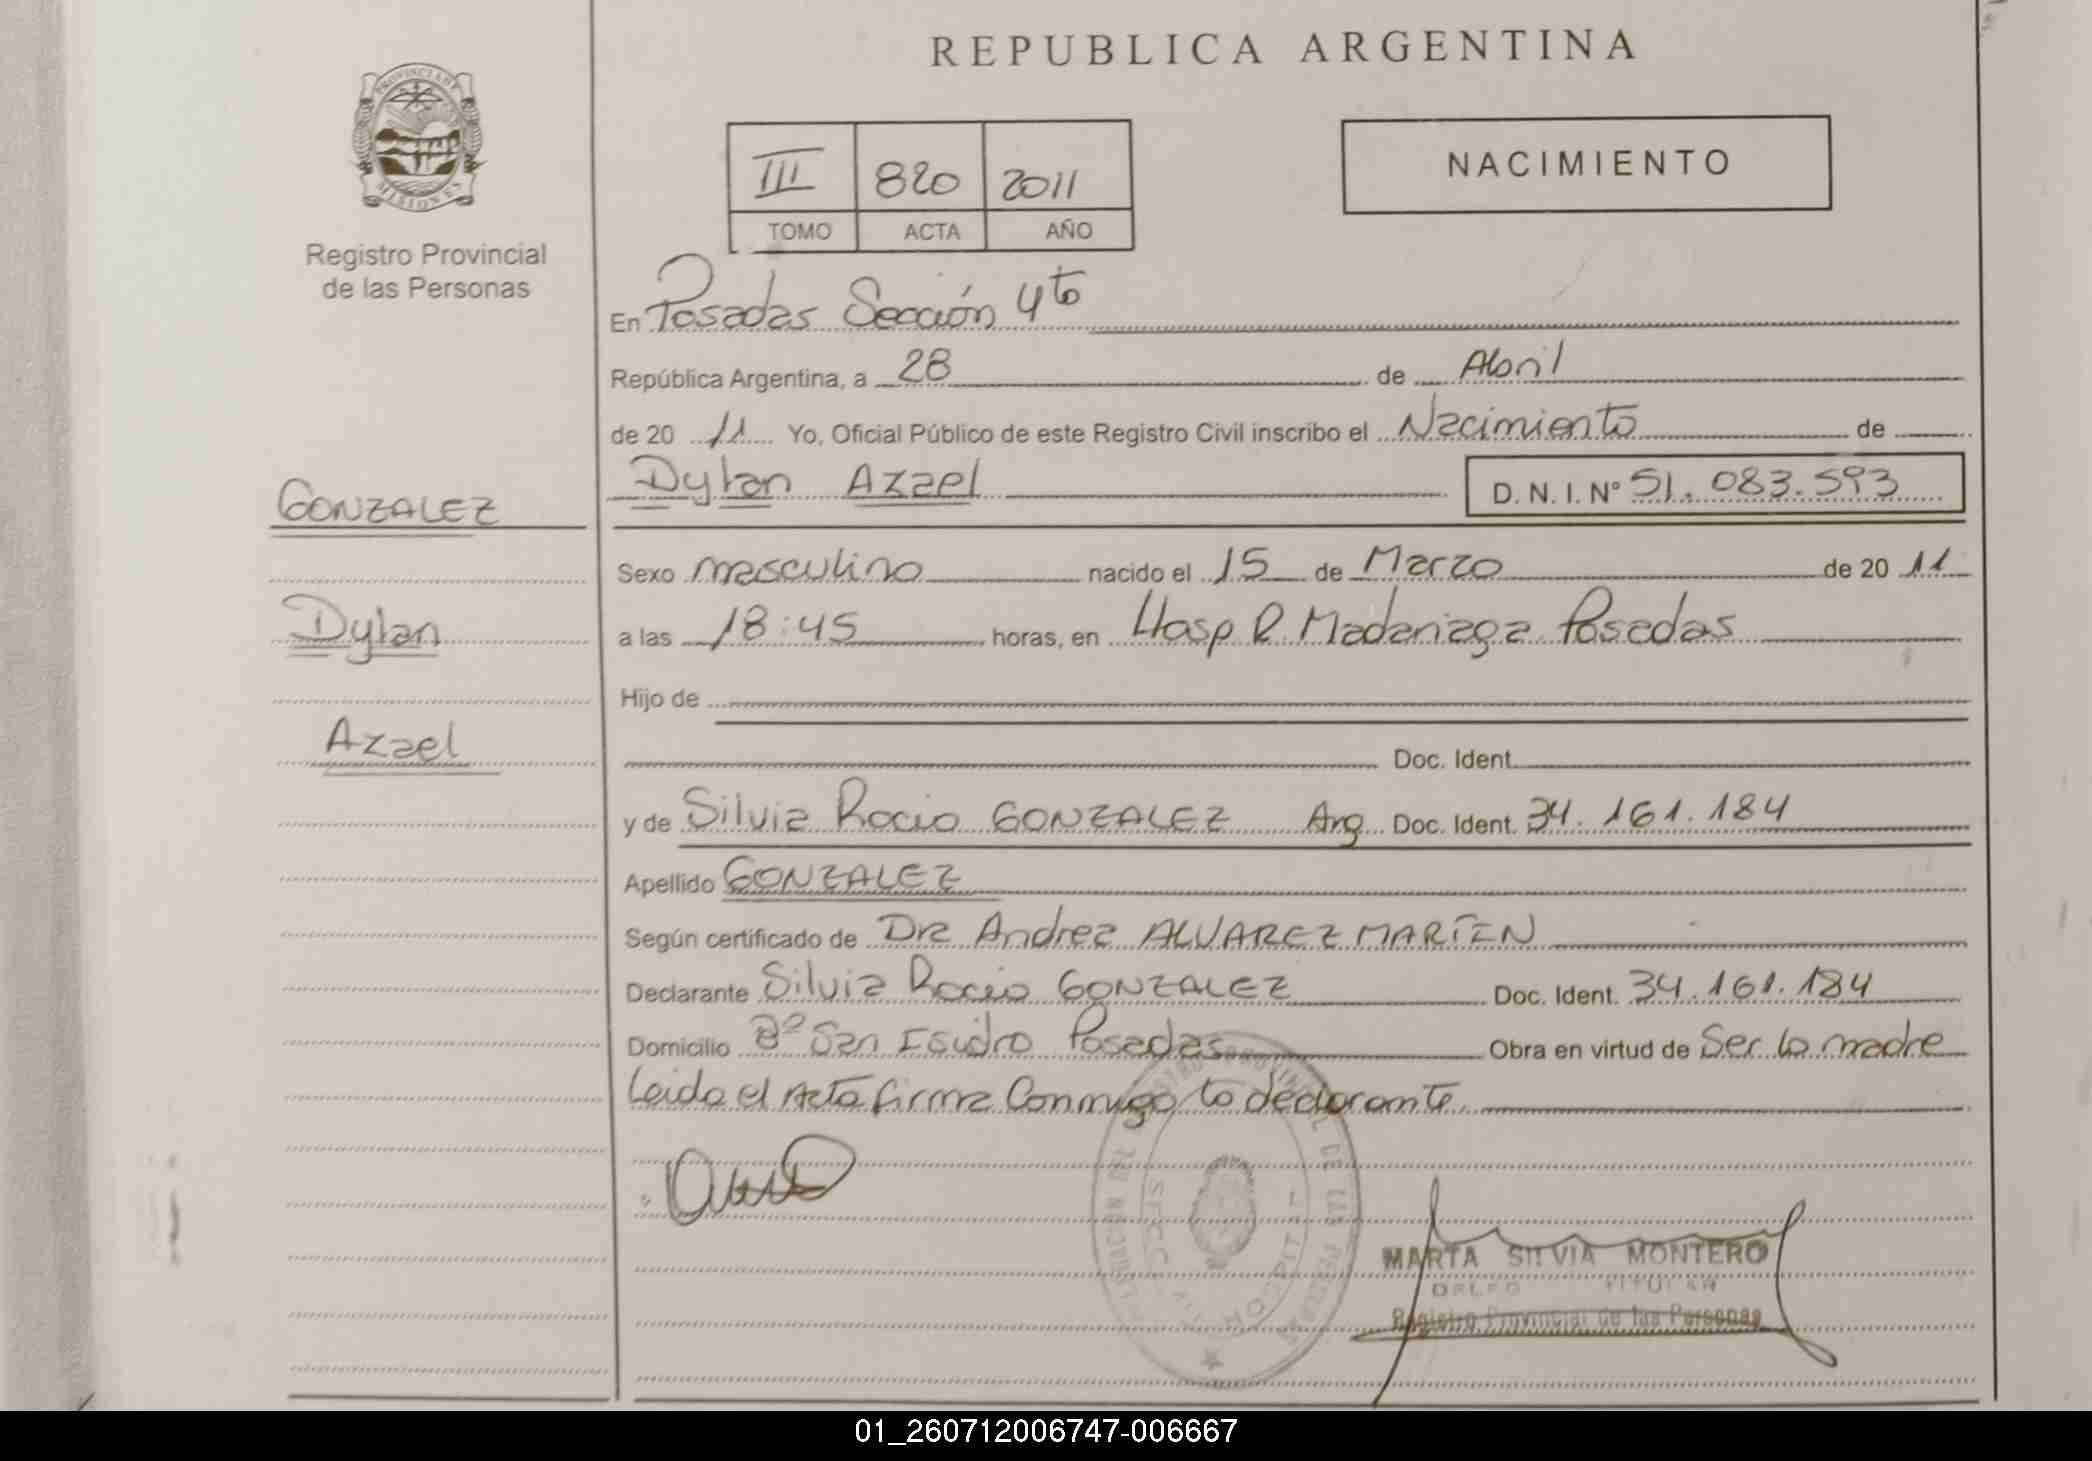 REPUBLICA ARGENTINA
PROVINCIA DE
MISIONES
Registro Provincial
de las Personas
III 820 2011
TOMO ACTA AÑO
NACIMIENTO
En Posadas Sección 4to
República Argentina, a 28 de Abril
de 20 11 Yo, Oficial Público de este Registro Civil inscribo el Nacimiento de
Dylan Azael D. N. I. Nº 51.083.593
GONZALEZ
Dylan
Azael
Sexo masculino nacido el 15 de Marzo de 20 11
a las 18:45 horas, en Hosp R Madariaga Posadas
Hijo de
Doc. Ident.
y de Silvia Rocio GONZALEZ Arg. Doc. Ident. 34.161.184
Apellido GONZALEZ
Según certificado de Dra Andrea ALVAREZ MARTEN
Declarante Silvia Rocio GONZALEZ Doc. Ident. 34.161.184
Domicilio Bº San Isidro Posadas Obra en virtud de Ser la madre
Leida el Acta firma Conmigo la declarante
MARTA SILVIA MONTERO
TITULAR
Registro Provincial de las Personas
01_260712006747-006667